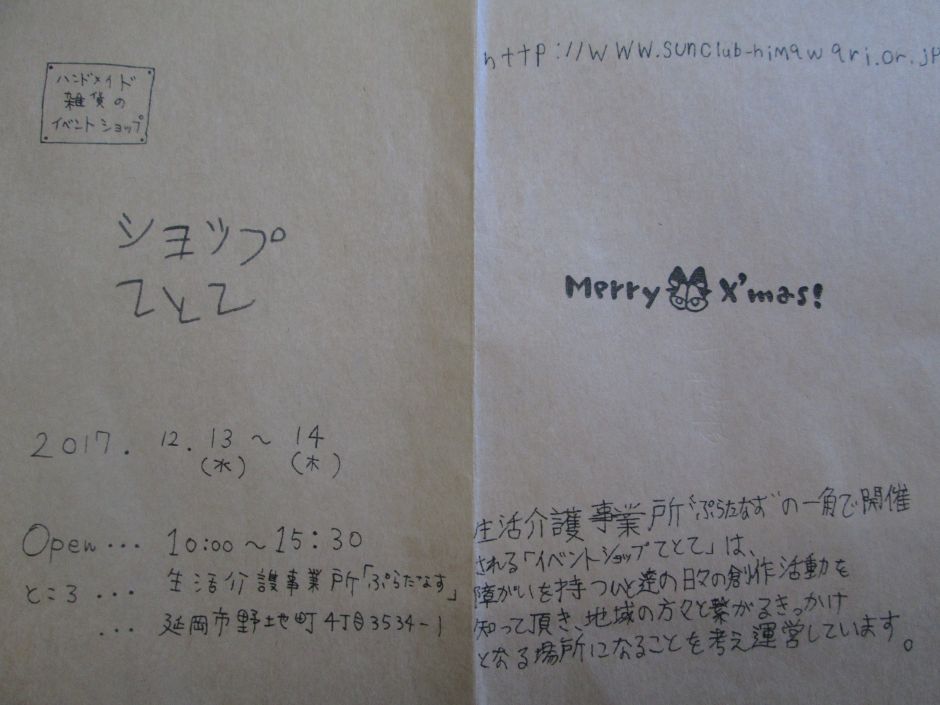 ハンドメイド
雑貨の
イベントショップ
ショップ
てとて
2017. 12. 13 ～ 14
(水) (木)
Open ・・・ 10:00 ～ 15:30
ところ ・・・ 生活介護事業所「ぷらたなす」
・・・ 延岡市野地町4丁目3534-1
http://www.sunclub-himawari.or.jp
Merry X'mas!
生活介護事業所"ぷらたなす"の一角で開催
される「イベントショップてとて」は、
障がいを持つひと達の日々の創作活動を
知って頂き、地域の方々と繋がるきっかけ
となる場所になることを考え運営しています。